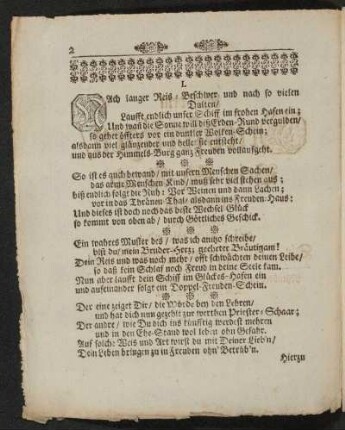 2
I.
NAch langer Reis-Beschwer und nach so vielen
Dulten/
Laufft endlich unser Schiff im frohen Hafen ein;
Und wañ die Sonne will diß Erden-Rund vergulden/
so gehet öffters vor ein dunkler Wolken-Schein;
alsdann viel glänzender und heller sie entsteht/
und aus der Himmels-Burg ganz Freuden voll aufgeht.
So ist es auch bewand/ mit unsern Menschen Sachen/
das arme Menschen Kind/ muß sehr viel stehen aus;
biß endlich folgt die Ruh: Vor Weinen und dann Lachen;
vor in das Thränen-Thal/ alsdann ins Freuden-Haus:
Und dieses ist doch noch das beste Wechsel Glück
so kommt von oben ab/ durch Göttliches Geschick.
Ein wahres Muster des/ was ich anitzo schreibe/
bist du/ mein Bruder-Herz; geehrter Bräutigam!
Dein Reis und was noch mehr/ offt schwächten deinen Leibe/
so daß kein Schlaf noch Freud in deine Seele kam.
Nun aber laufft dein Schiff im Glückes-Hafen ein
und aufeinander folgt ein Doppel-Freuden-Schein.
Der eine zeiget Dir/ die Würde bey den Lehren/
und hat dich nun gezehlt zur werthen Priester-Schaar;
Der andre/ wie Du dich ins künfftig werdest mehren
und in den Ehe-Stand wol leben ohn Gefahr.
Auf solche Weis und Art wirst du mit Deiner Lieb'n/
Dein Leben bringen zu in Freuden ohn' Betrüb'n.
Hierzu